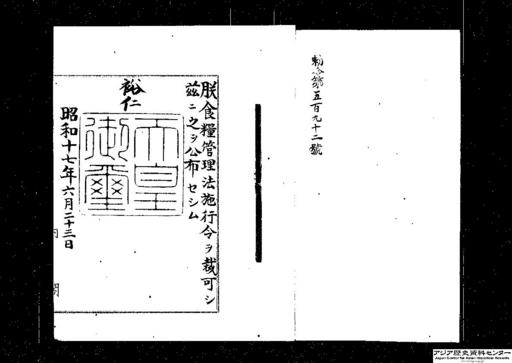 勅令第五百九十二號
朕食糧管理法施行令ヲ裁可シ
玆ニ之ヲ公布セシム
裕仁
天皇御璽
昭和十七年六月二十三日
内閣
アジア歴史資料センター
Japan Center for Asian Historical Records